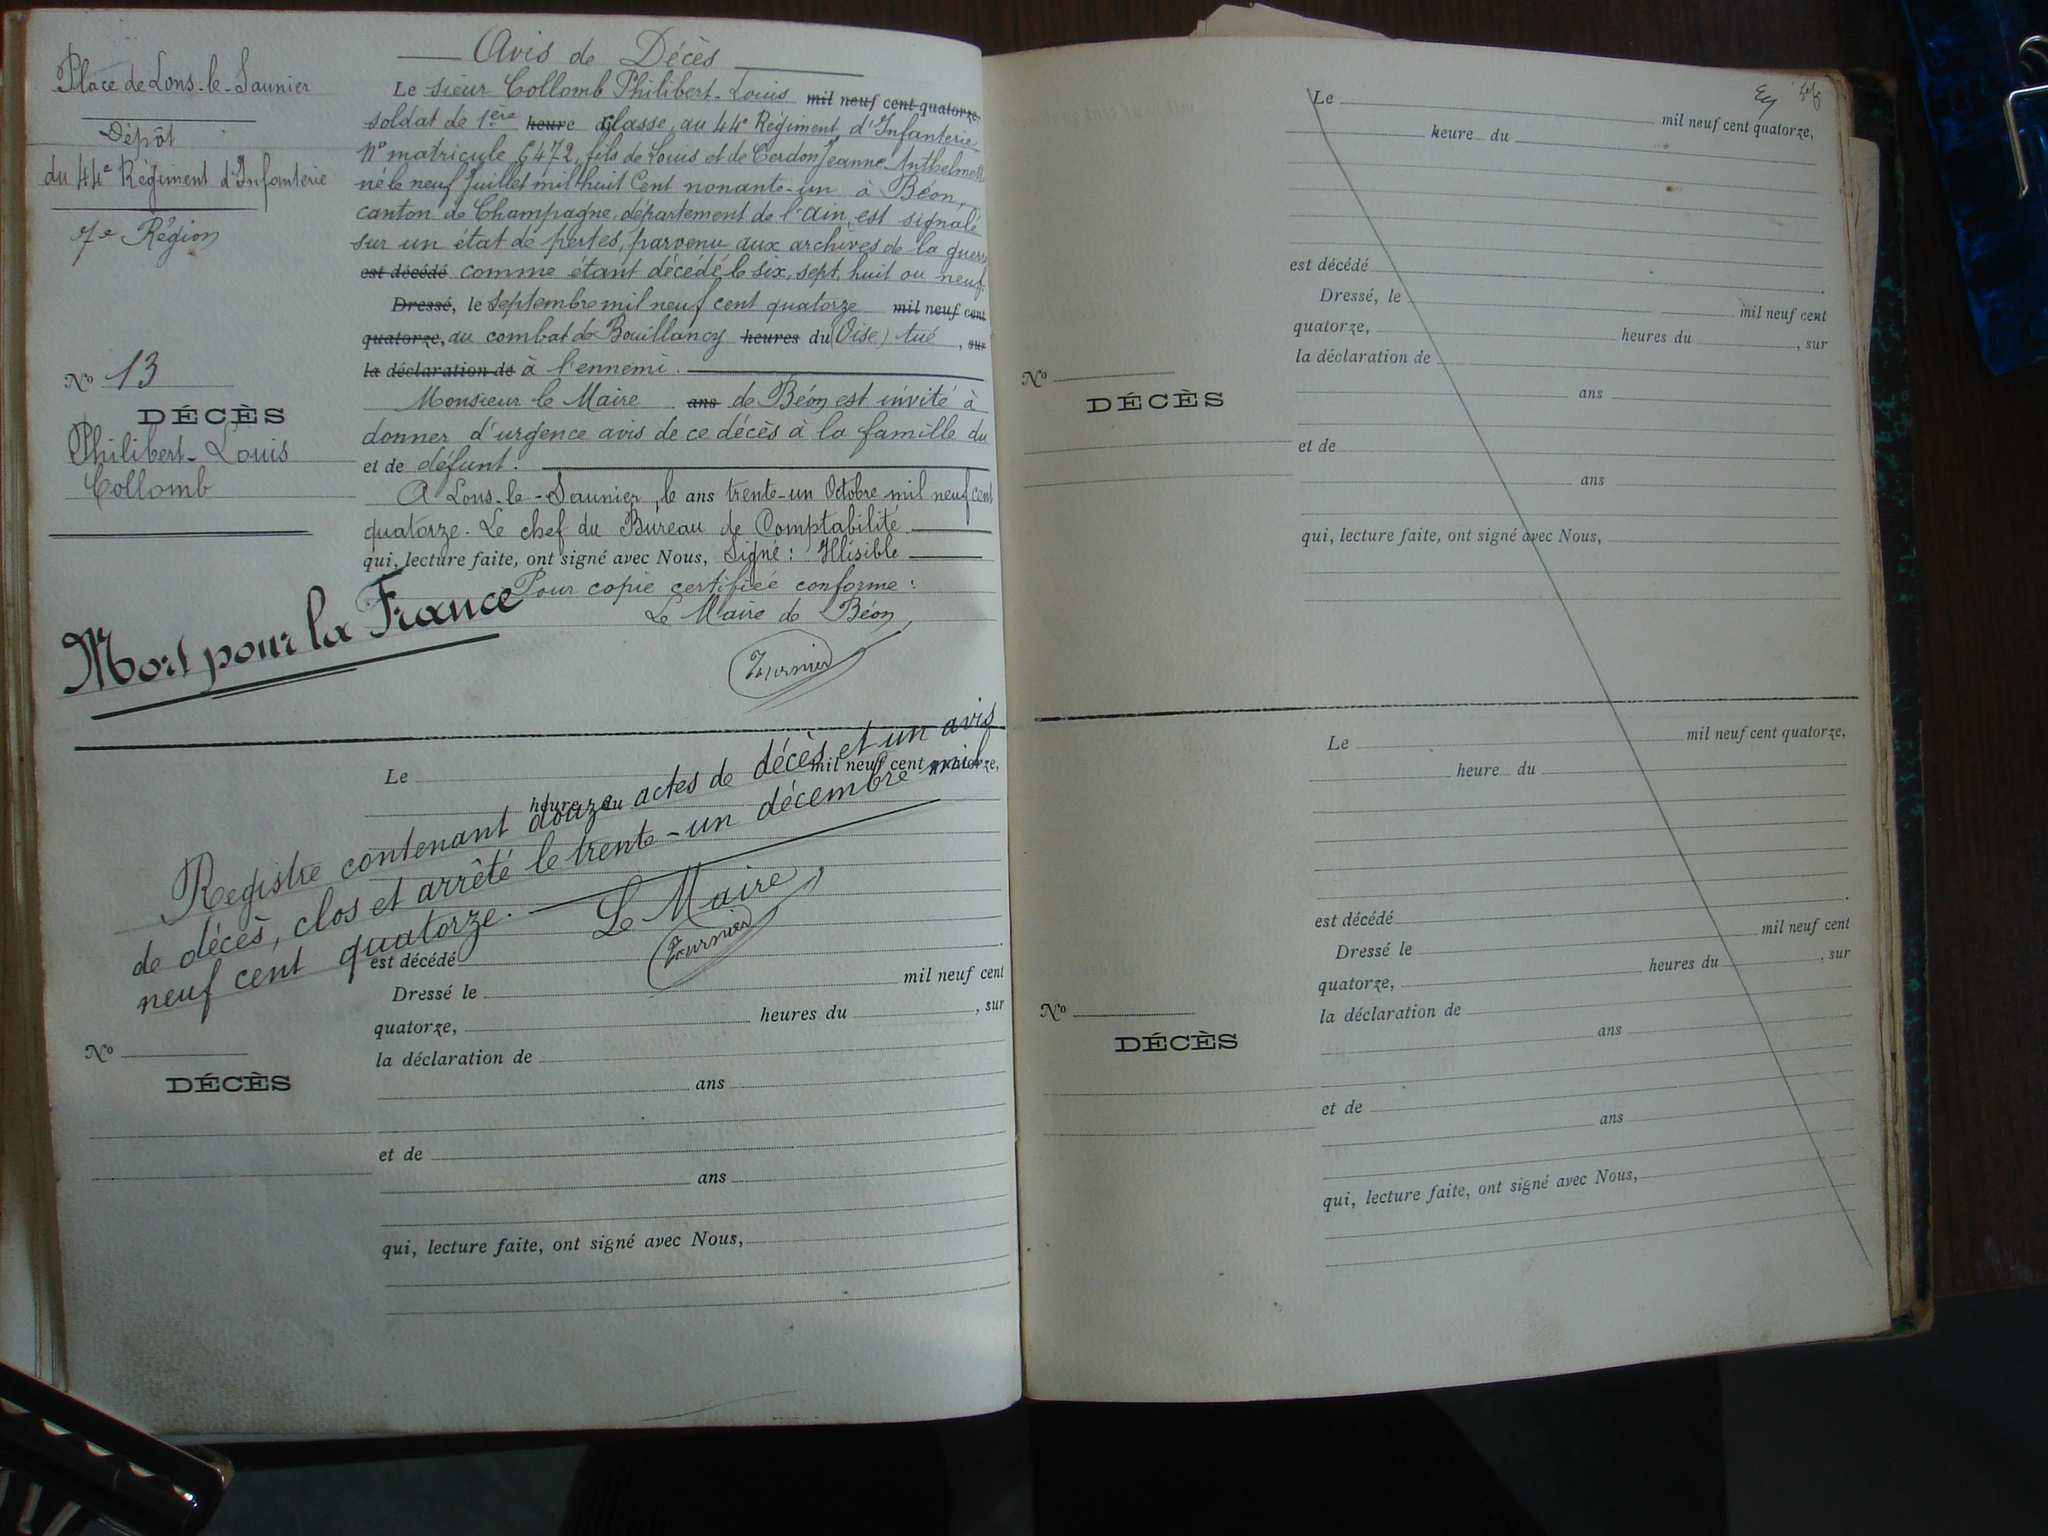 Place de Lons-le-Saunier
Dépôt
du 44e Régiment d'Infanterie
7e Région
No 13
DÉCÈS
Philibert-Louis
Collomb
Mort pour la France
Avis de Décès
Le sieur Collomb Philibert-Louis mil neuf cent quatorze,
soldat de 1ère heure classe, au 44e Régiment d'Infanterie
No matricule 6472, fils de Louis et de Cerdon Jeanne
né le neuf Juillet mil huit Cent nonante-un à Béon,
canton de Champagne, département de l'Ain, est signalé
sur un état de pertes, parvenu aux archives de la guerre
est décédé comme étant décédé le six, sept, huit ou neuf
Dressé, le Septembre mil neuf cent quatorze mil neuf cent
quatorze, au combat de Bouillancy heures du (Oise) tué , sur
la déclaration de à l'ennemi.
Monsieur le Maire ans de Béon est invité à
donner d'urgence avis de ce décès à la famille du
et de défunt.
A Lons-le-Saunier, le ans trente-un Octobre mil neuf cent
quatorze. Le chef du Bureau de Comptabilité
qui, lecture faite, ont signé avec Nous, Signé : Illisible
Pour copie certifiée conforme :
Le Maire de Béon,
Tournier
Le mil neuf cent quatorze,
heure du
Registre contenant douze actes de décès et un avis
de décès, clos et arrêté le trente-un décembre mil
neuf cent quatorze.
Le Maire
Tournier
est décédé .
Dressé le mil neuf cent
quatorze, heures du , sur
No
DÉCÈS
la déclaration de
ans
et de
ans
qui, lecture faite, ont signé avec Nous,
Le mil neuf cent quatorze,
heure du
est décédé .
Dressé, le mil neuf cent
quatorze, heures du , sur
la déclaration de
No
DÉCÈS
ans
et de
ans
qui, lecture faite, ont signé avec Nous,
Le mil neuf cent quatorze,
heure du
est décédé .
Dressé le mil neuf cent
quatorze, heures du , sur
la déclaration de
No
DÉCÈS
ans
et de
ans
qui, lecture faite, ont signé avec Nous,